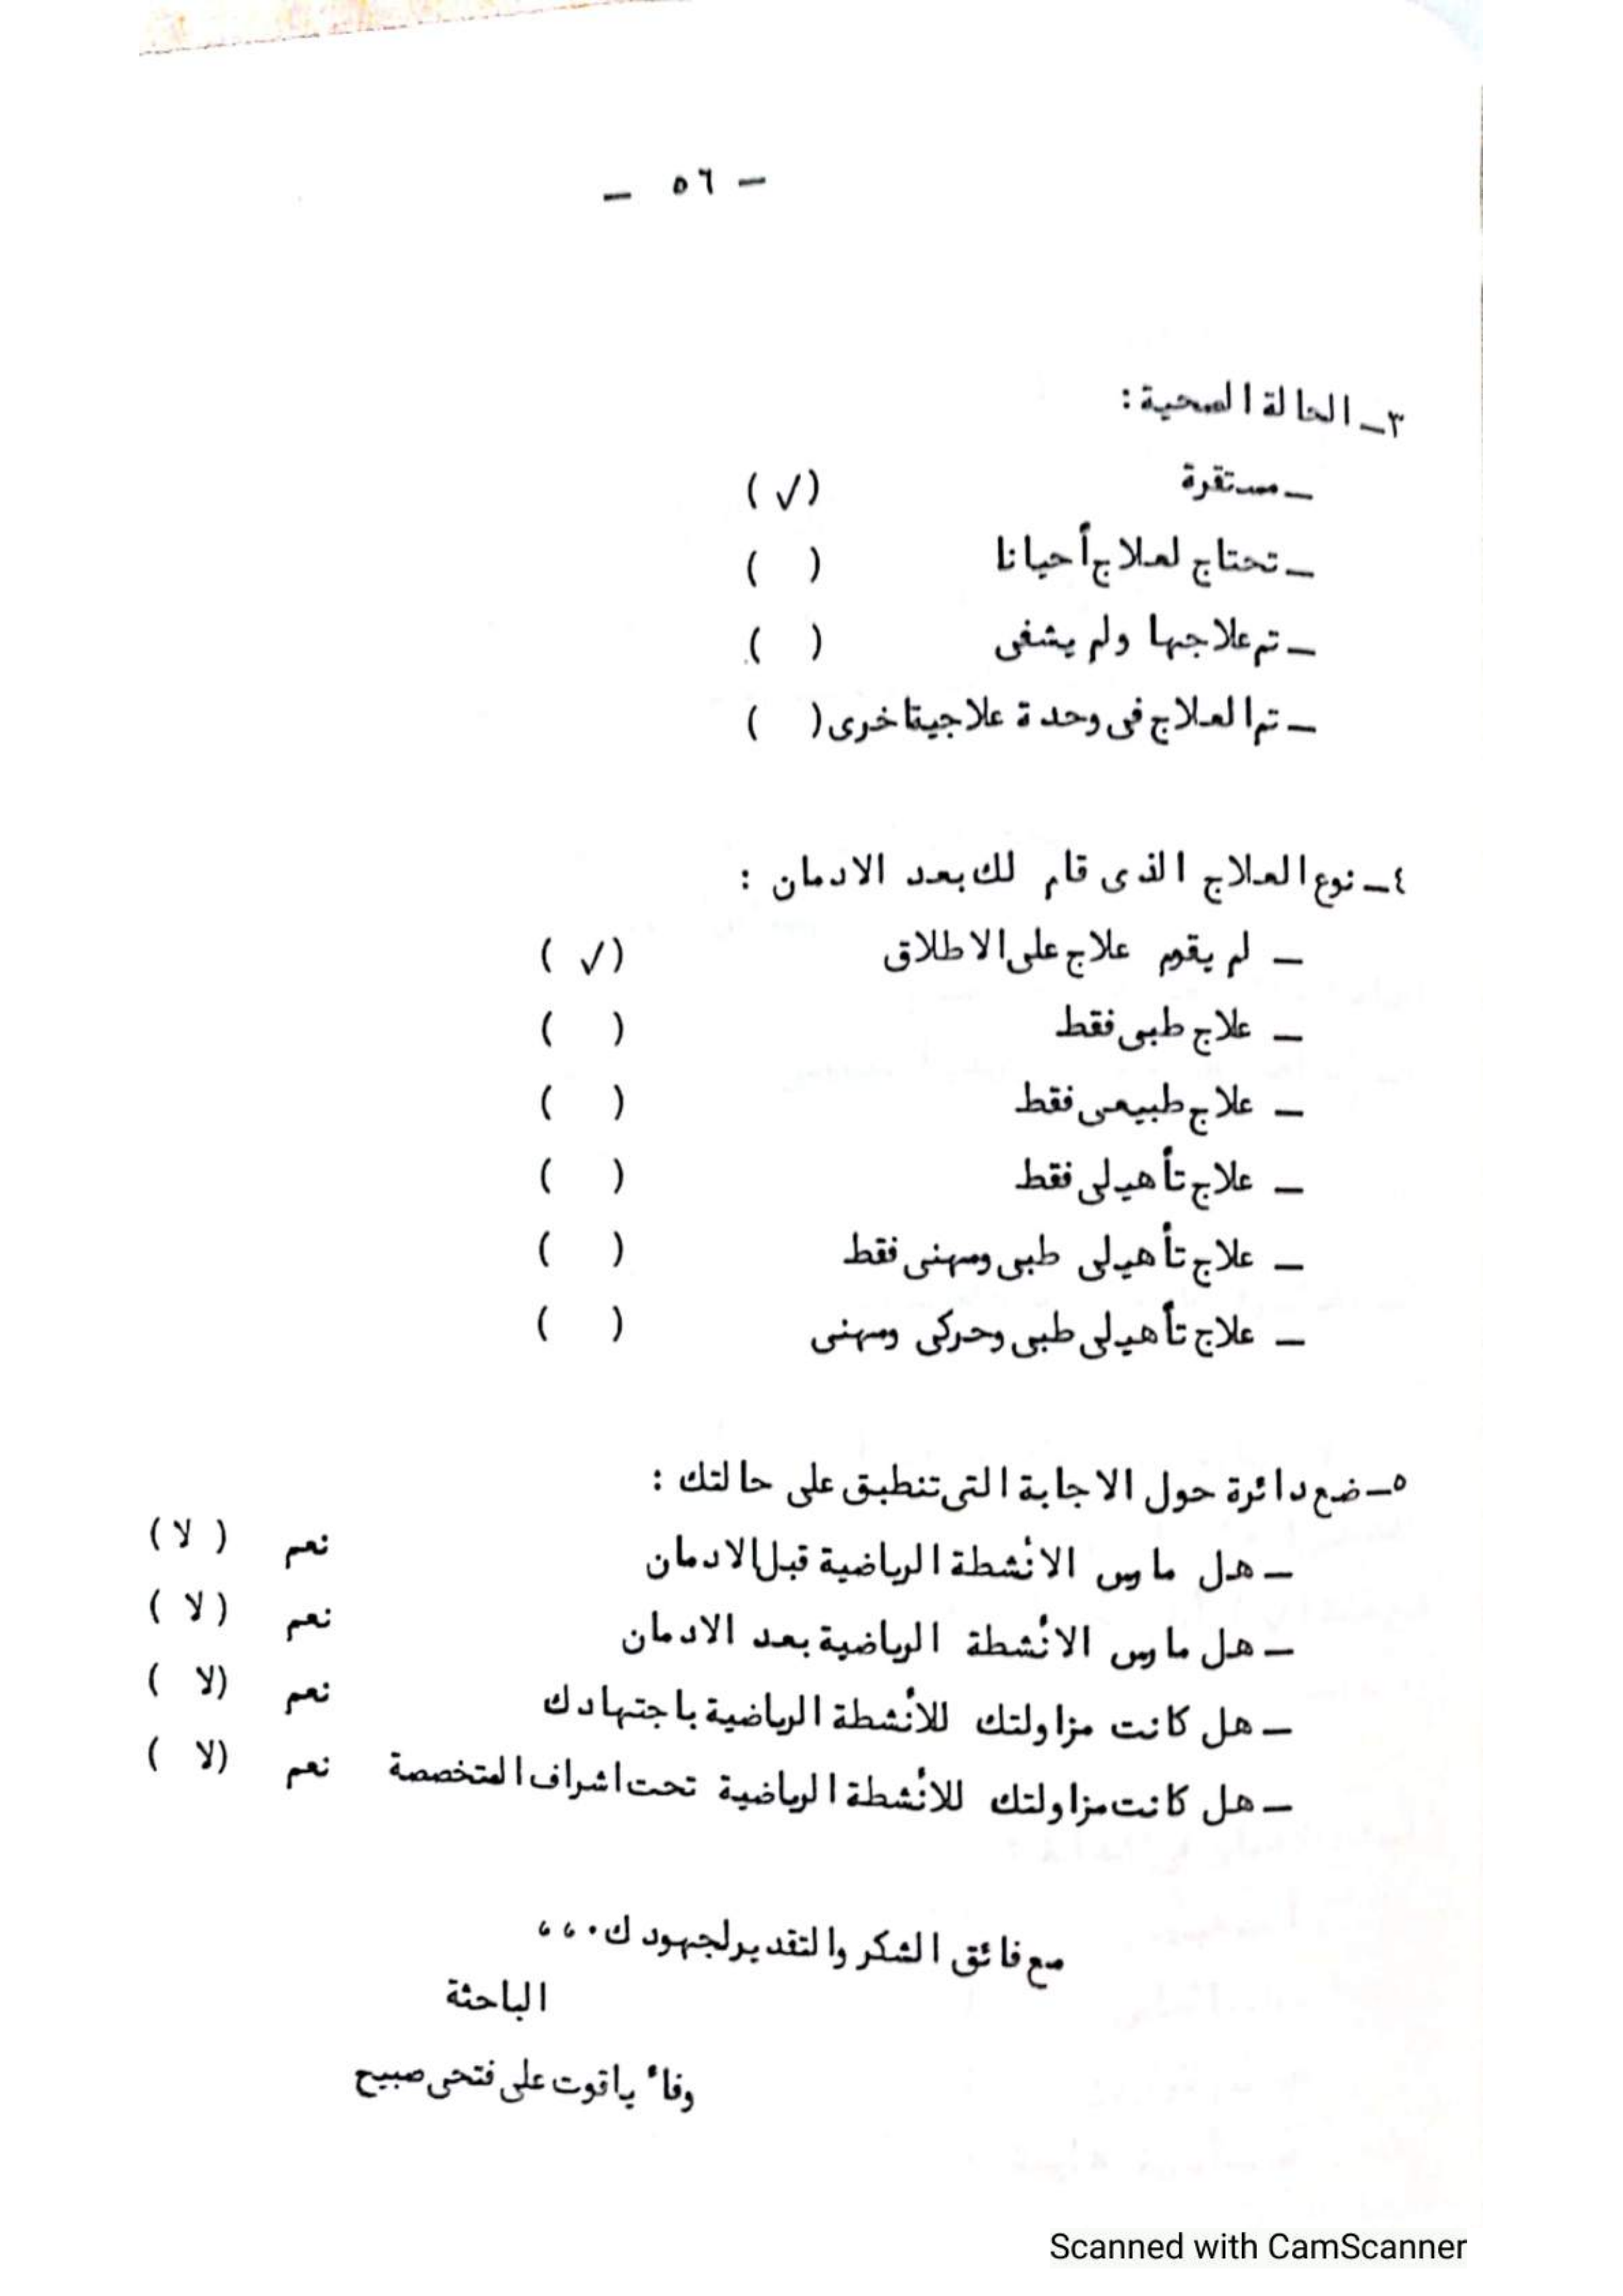 - ٥٦ -
٣- الحالة الصحية :
- مستقرة ( √ )
- تحتاج لعلاج أحيانا ( )
- تم علاجها ولم يشفى ( )
- تم العلاج فى وحدة علاجية اخرى ( )
٤- نوع العلاج الذى قام لك بعد الادمان :
- لم يقوم علاج على الاطلاق ( √ )
- علاج طبى فقط ( )
- علاج طبيعى فقط ( )
- علاج تأهيلى فقط ( )
- علاج تأهيلى طبى ومهنى فقط ( )
- علاج تأهيلى طبى وحركى ومهنى ( )
٥- ضع دائرة حول الاجابة التى تنطبق على حالتك :
- هل مارس الانُشطة الرياضية قبل الادمان نعم ( لا )
- هل مارس الانُشطة الرياضية بعد الادمان نعم ( لا )
- هل كانت مزاولتك للانُشطة الرياضية باجتهادك نعم ( لا )
- هل كانت مزاولتك للانُشطة الرياضية تحت اشراف المتخصصة نعم ( لا )
مع فائق الشكر والتقدير لجهودك ،،،
الباحثة
وفاء ياقوت على فتحى صبيح
Scanned with CamScanner